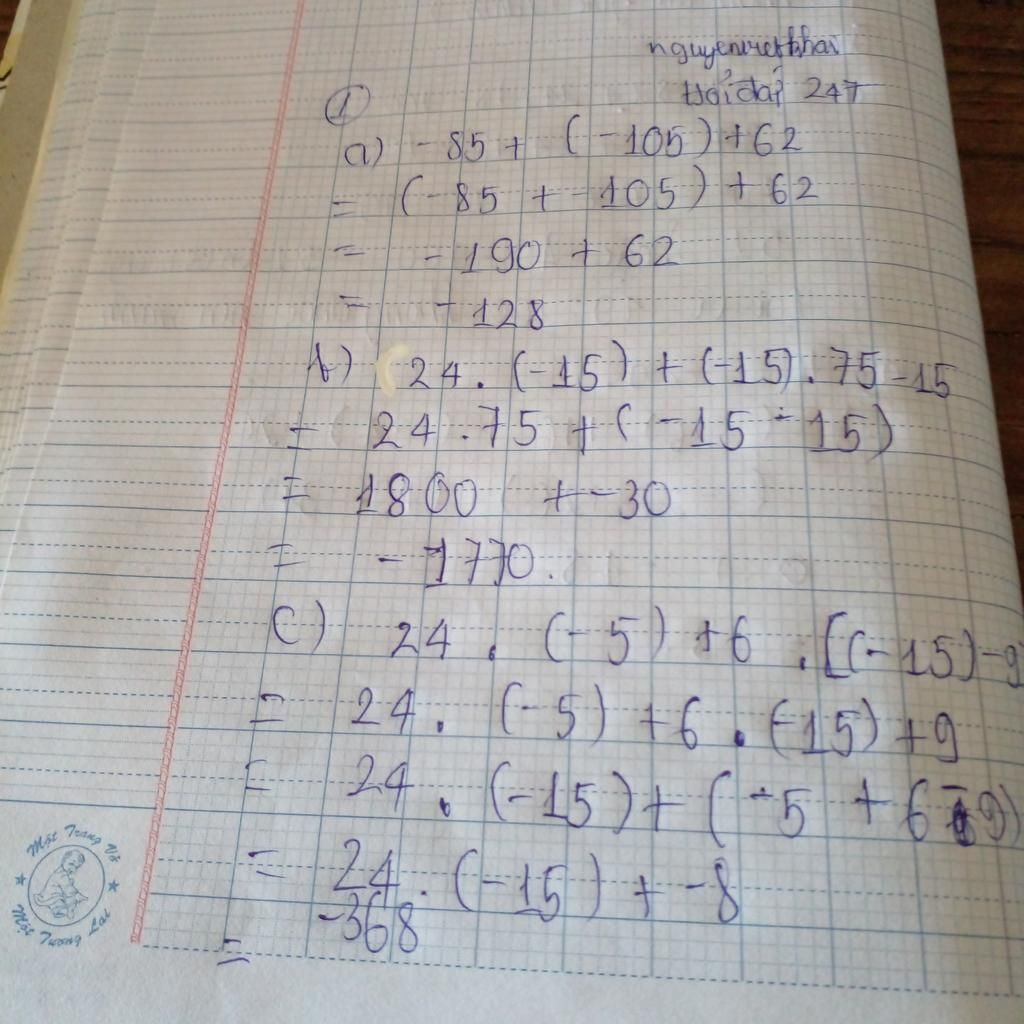 nguyenvietkhai
Hỏi đáp 247
1
a) -85 + (-105) + 62
= (-85 + -105) + 62
= -190 + 62
= -128
b) (24 . (-15) + (-15) . 75 - 15
= 24 . 75 + (-15 - 15)
= 1800 + -30
= -1770.
c) 24 . (-5) + 6 . [(-15) - 9
= 24 . (-5) + 6 . (-15) + 9
= 24 . (-15) + (-5 + 6 - 9)
= 24 . (-15) + -8
= -368
Một Trang Vở
Một Tương Lai